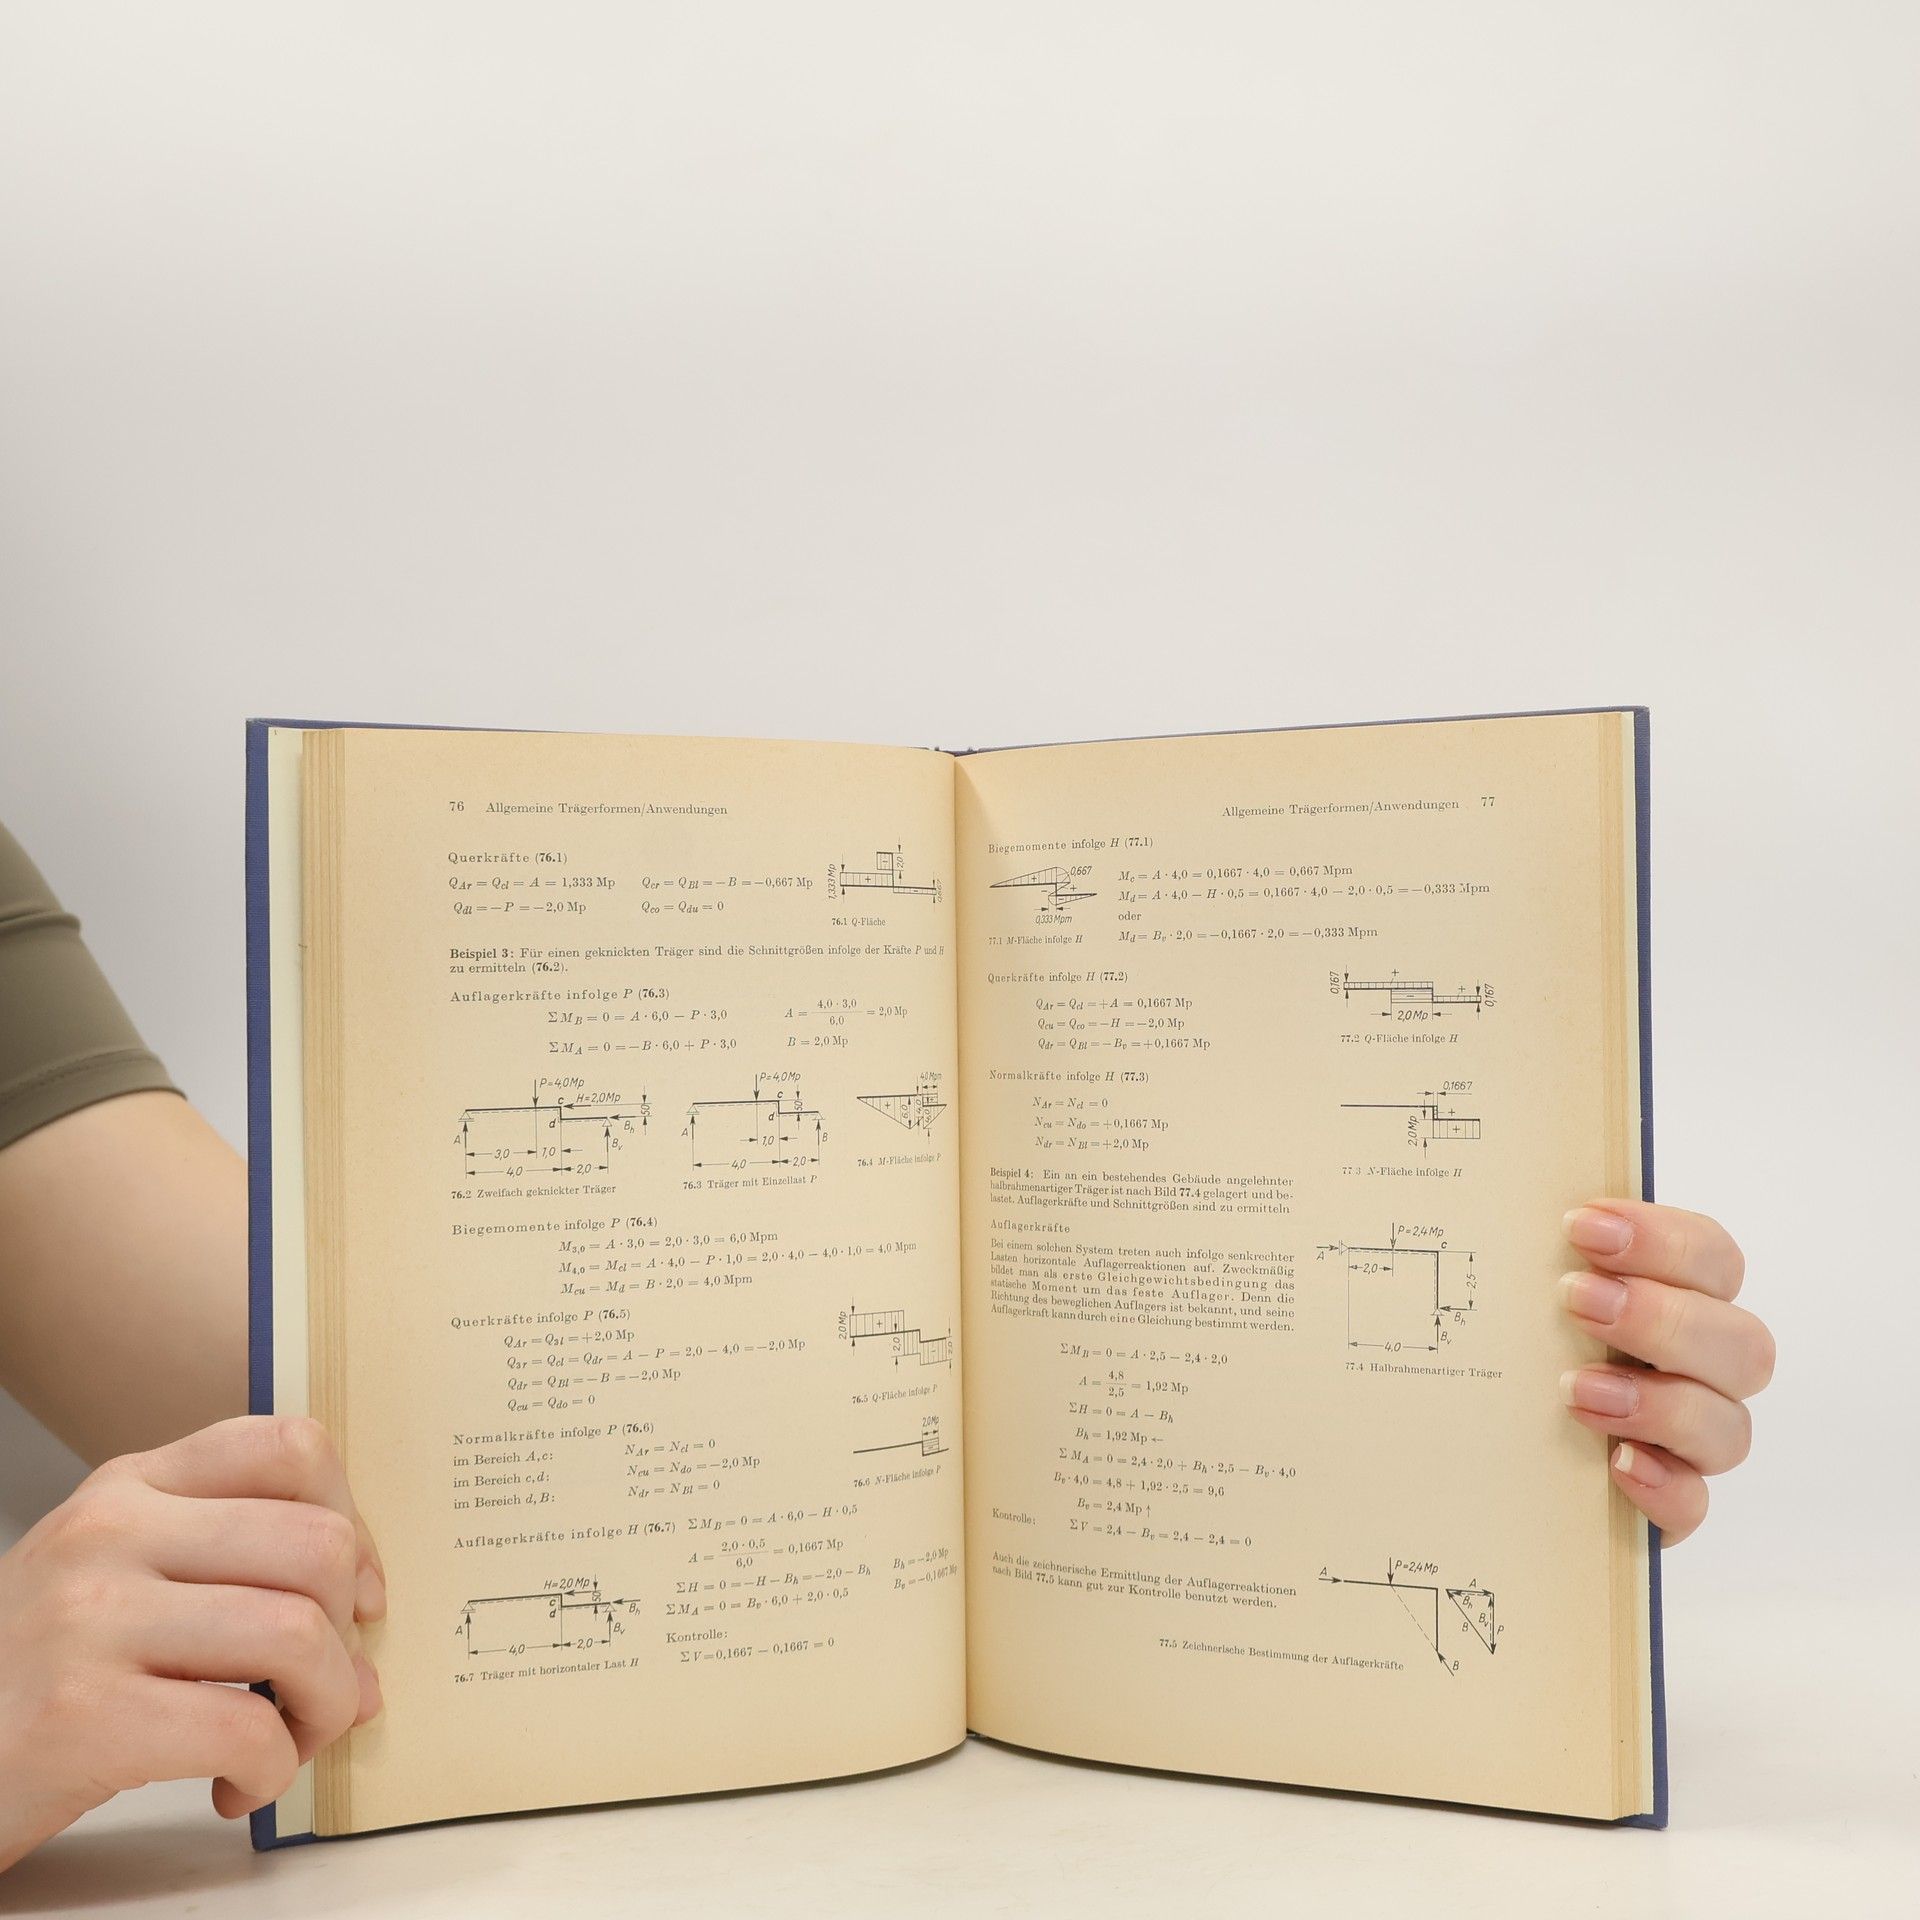 76 Allgemeine Trägerformen/Anwendungen
Querkräfte (76.1)
Q_Ar = Q_cl = A = 1,333 Mp Q_cr = Q_Bl = −B = −0,667 Mp
Q_dl = −P = −2,0 Mp Q_co = Q_du = 0
1,333 Mp + − 2,0 0,667
76.1 Q-Fläche
Beispiel 3: Für einen geknickten Träger sind die Schnittgrößen infolge der Kräfte P und H
zu ermitteln (76.2).
Auflagerkräfte infolge P (76.3)
ΣM_B = 0 = A · 6,0 − P · 3,0 A = 4,0 · 3,0 / 6,0 = 2,0 Mp
ΣM_A = 0 = −B · 6,0 + P · 3,0 B = 2,0 Mp
P=4,0Mp c H=2,0Mp 50 d A B_h B_v 3,0 1,0 4,0 2,0
76.2 Zweifach geknickter Träger
P=4,0Mp c 50 d A B 1,0 4,0 2,0
76.3 Träger mit Einzellast P
4,0 Mpm + 6,0 4,0
76.4 M-Fläche infolge P
Biegemomente infolge P (76.4)
M_3,0 = A · 3,0 = 2,0 · 3,0 = 6,0 Mpm
M_4,0 = M_cl = A · 4,0 − P · 1,0 = 2,0 · 4,0 − 4,0 · 1,0 = 4,0 Mpm
M_cu = M_d = B · 2,0 = 4,0 Mpm
Querkräfte infolge P (76.5)
Q_Ar = Q_3l = +2,0 Mp
Q_3r = Q_cl = Q_dr = A − P = 2,0 − 4,0 = −2,0 Mp
Q_dr = Q_Bl = −B = −2,0 Mp
Q_cu = Q_do = 0
2,0 Mp + 2,0 2,0
76.5 Q-Fläche infolge P
Normalkräfte infolge P (76.6)
im Bereich A, c: N_Ar = N_cl = 0
im Bereich c, d: N_cu = N_do = −2,0 Mp
im Bereich d, B: N_dr = N_Bl = 0
2,0Mp
76.6 N-Fläche infolge P
Auflagerkräfte infolge H (76.7) ΣM_B = 0 = A · 6,0 − H · 0,5
A = 2,0 · 0,5 / 6,0 = 0,1667 Mp
ΣH = 0 = −H − B_h = −2,0 − B_h B_h = −2,0 Mp
ΣM_A = 0 = B_v · 6,0 + 2,0 · 0,5 B_v = −0,1667 Mp
Kontrolle:
ΣV = 0,1667 − 0,1667 = 0
H=2,0 Mp 50 c d A B_h B_v 4,0 2,0
76.7 Träger mit horizontaler Last H
Allgemeine Trägerformen/Anwendungen 77
Biegemomente infolge H (77.1)
M_c = A · 4,0 = 0,1667 · 4,0 = 0,667 Mpm
M_d = A · 4,0 − H · 0,5 = 0,1667 · 4,0 − 2,0 · 0,5 = −0,333 Mpm
oder
M_d = B_v · 2,0 = −0,1667 · 2,0 = −0,333 Mpm
0,667 + − 0,333 Mpm
77.1 M-Fläche infolge H
Querkräfte infolge H (77.2)
Q_Ar = Q_cl = +A = 0,1667 Mp
Q_cu = Q_co = −H = −2,0 Mp
Q_dr = Q_Bl = −B_v = +0,1667 Mp
0,167 + − + 0,167 2,0 Mp
77.2 Q-Fläche infolge H
Normalkräfte infolge H (77.3)
N_Ar = N_cl = 0
N_cu = N_do = +0,1667 Mp
N_dr = N_Bl = +2,0 Mp
0,1667 + 2,0 Mp
77.3 N-Fläche infolge H
Beispiel 4: Ein an ein bestehendes Gebäude angelehnter
halbrahmenartiger Träger ist nach Bild 77.4 gelagert und be-
lastet. Auflagerkräfte und Schnittgrößen sind zu ermitteln
Auflagerkräfte
Bei einem solchen System treten auch infolge senkrechter
Lasten horizontale Auflagerreaktionen auf. Zweckmäßig
bildet man als erste Gleichgewichtsbedingung das
statische Moment um das feste Auflager. Denn die
Richtung des beweglichen Auflagers ist bekannt, und seine
Auflagerkraft kann durch eine Gleichung bestimmt werden.
P=2,4 Mp c A 2,0 2,5 B_h B_v 4,0
77.4 Halbrahmenartiger Träger
ΣM_B = 0 = A · 2,5 − 2,4 · 2,0
A = 4,8 / 2,5 = 1,92 Mp
ΣH = 0 = A − B_h
B_h = 1,92 Mp ←
ΣM_A = 0 = 2,4 · 2,0 + B_h · 2,5 − B_v · 4,0
B_v · 4,0 = 4,8 + 1,92 · 2,5 = 9,6
B_v = 2,4 Mp ↑
Kontrolle: ΣV = 2,4 − B_v = 2,4 − 2,4 = 0
Auch die zeichnerische Ermittlung der Auflagerreaktionen
nach Bild 77.5 kann gut zur Kontrolle benutzt werden.
A P=2,4 Mp B A B_h B_v B P
77.5 Zeichnerische Bestimmung der Auflagerkräfte